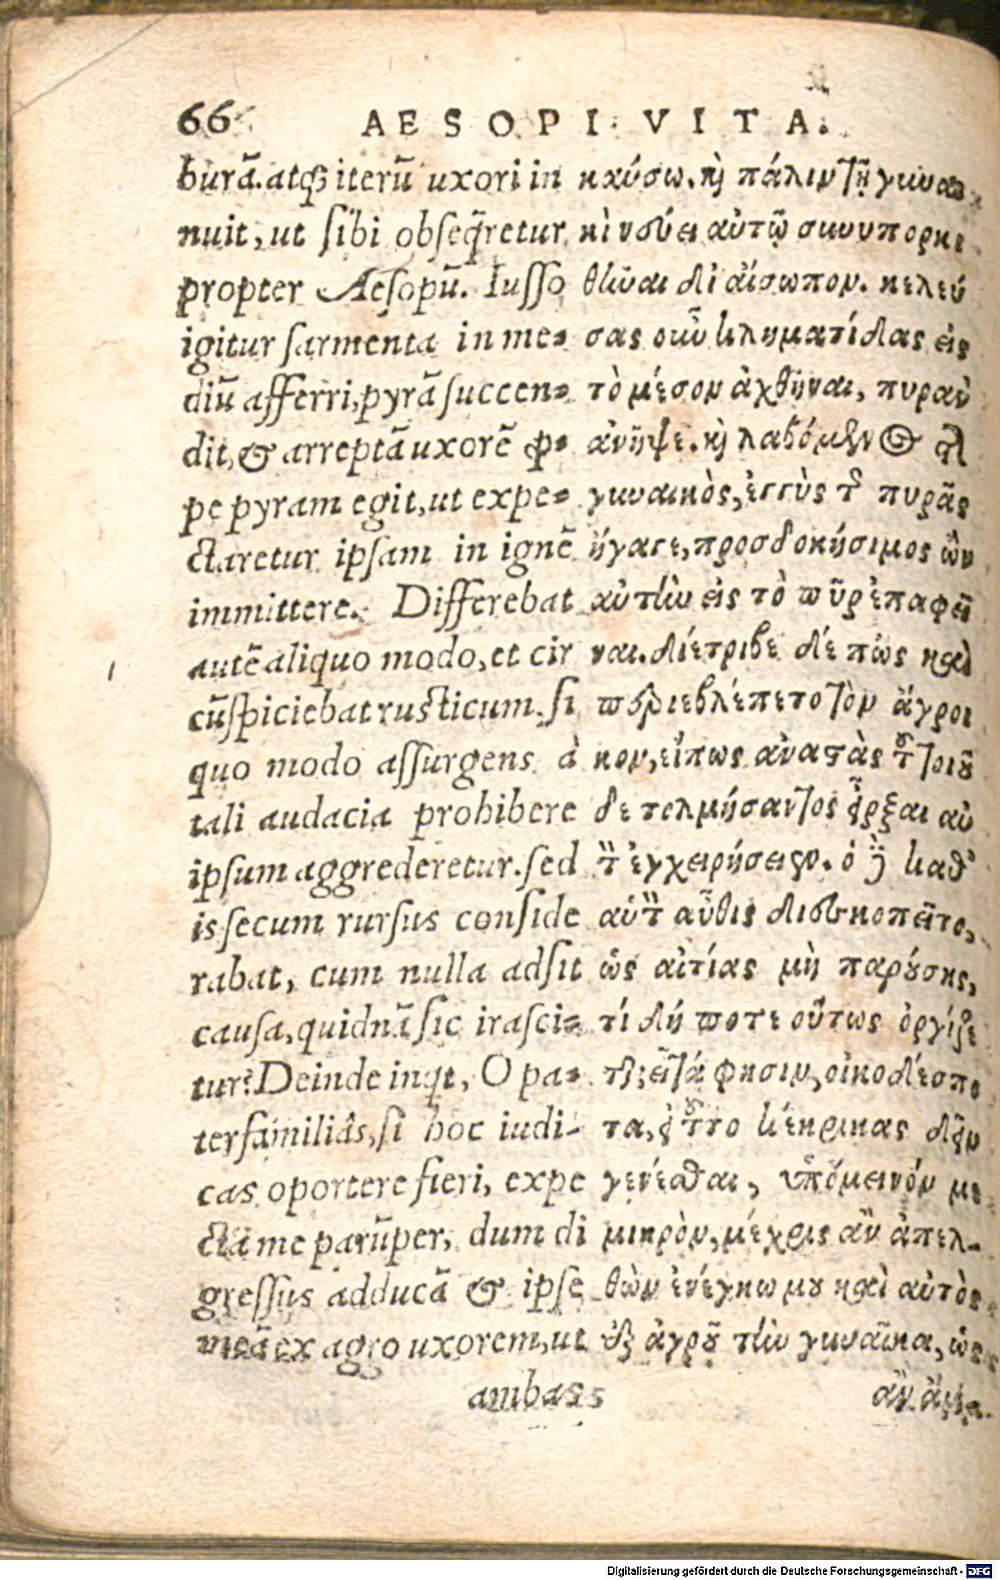 66 AESOPI VITA.
burā. atq; iterū uxori in
nuit, ut sibi obseq̄retur
propter Aesopū. Iusso
igitur sarmenta in me-
diū afferri, pyrā succen-
dit, & arreptā uxorē pro-
pe pyram egit, ut expe-
ctaretur ipsam in ignē
immittere. Differebat
autē aliquo modo, et cir
cūspiciebat rusticum, si
quo modo assurgens à
tali audacia prohibere
ipsum aggrederetur. sed
is secum rursus conside
rabat, cum nulla adsit
causa, quidnā sic irasci-
tur? Deinde inqt, O pa-
terfamiliâs, si hoc iudi-
cas oportere fieri, expe
ctā me parūper, dum di
gressus adducā & ipse
meā ex agro uxorem, ut
ambas
καύσω. καὶ πάλιν τῇ γυναι
κὶ νεύει αὐτῷ συνυποκρι
θῆναι δι' αἴσωπον. κελεύ
σας οὖν κληματίδας εἰς
τὸ μέσον ἀχθῆναι, πυρὰν
ἀνῆψε. καὶ λαβόμενος τῆς
γυναικὸς, ἐγγὺς τῆς πυρᾶς
ἤγαγε, προσδοκήσιμος ὢν
αὐτὴν εἰς τὸ πῦρ ἐπαφεῖ
ναι. διέτριβε δέ πως καὶ
περιεβλέπετο τὸν ἄγροι
κον, εἴπως ἀναστὰς τοῦ τοιού
δε τολμήσαντος εἶρξαι αὐ
τὸν ἐγχειρήσειεν. ὁ δὲ καθ'
αὑτὸν αὖθις διεσκοπεῖτο,
ὡς αἰτίας μὴ παρούσης,
τί δή ποτε οὕτως ὀργίζε
ται; εἶτά φησιν, οἰκοδέσπο
τα, εἰ τοῦτο κέκρικας δεῖν
γενέσθαι, ὑπόμεινόν με
μικρὸν, μέχρις ἂν ἀπελ-
θὼν ἐνέγκω μου καὶ αὐτὸς
ἐξ ἀγροῦ τὴν γυναῖκα, ὡς
ἂν ἄμφω
Digitalisierung gefördert durch die Deutsche Forschungsgemeinschaft - DFG